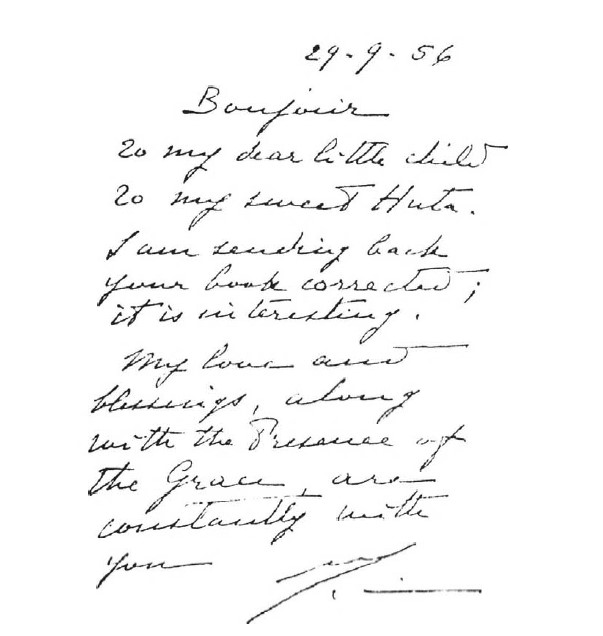 29-9-56
Bonjour
to my dear little child
to my sweet Huta.
I am sending back
your book corrected;
it is interesting.
My love and
blessings, along
with the Presence of
the Grace, are
constantly with
you